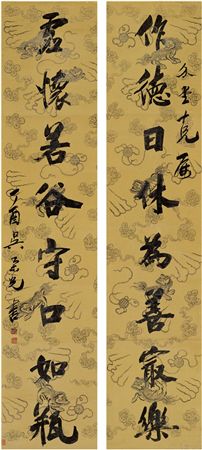 作德日休為善最樂
虛懷若谷守口如瓶